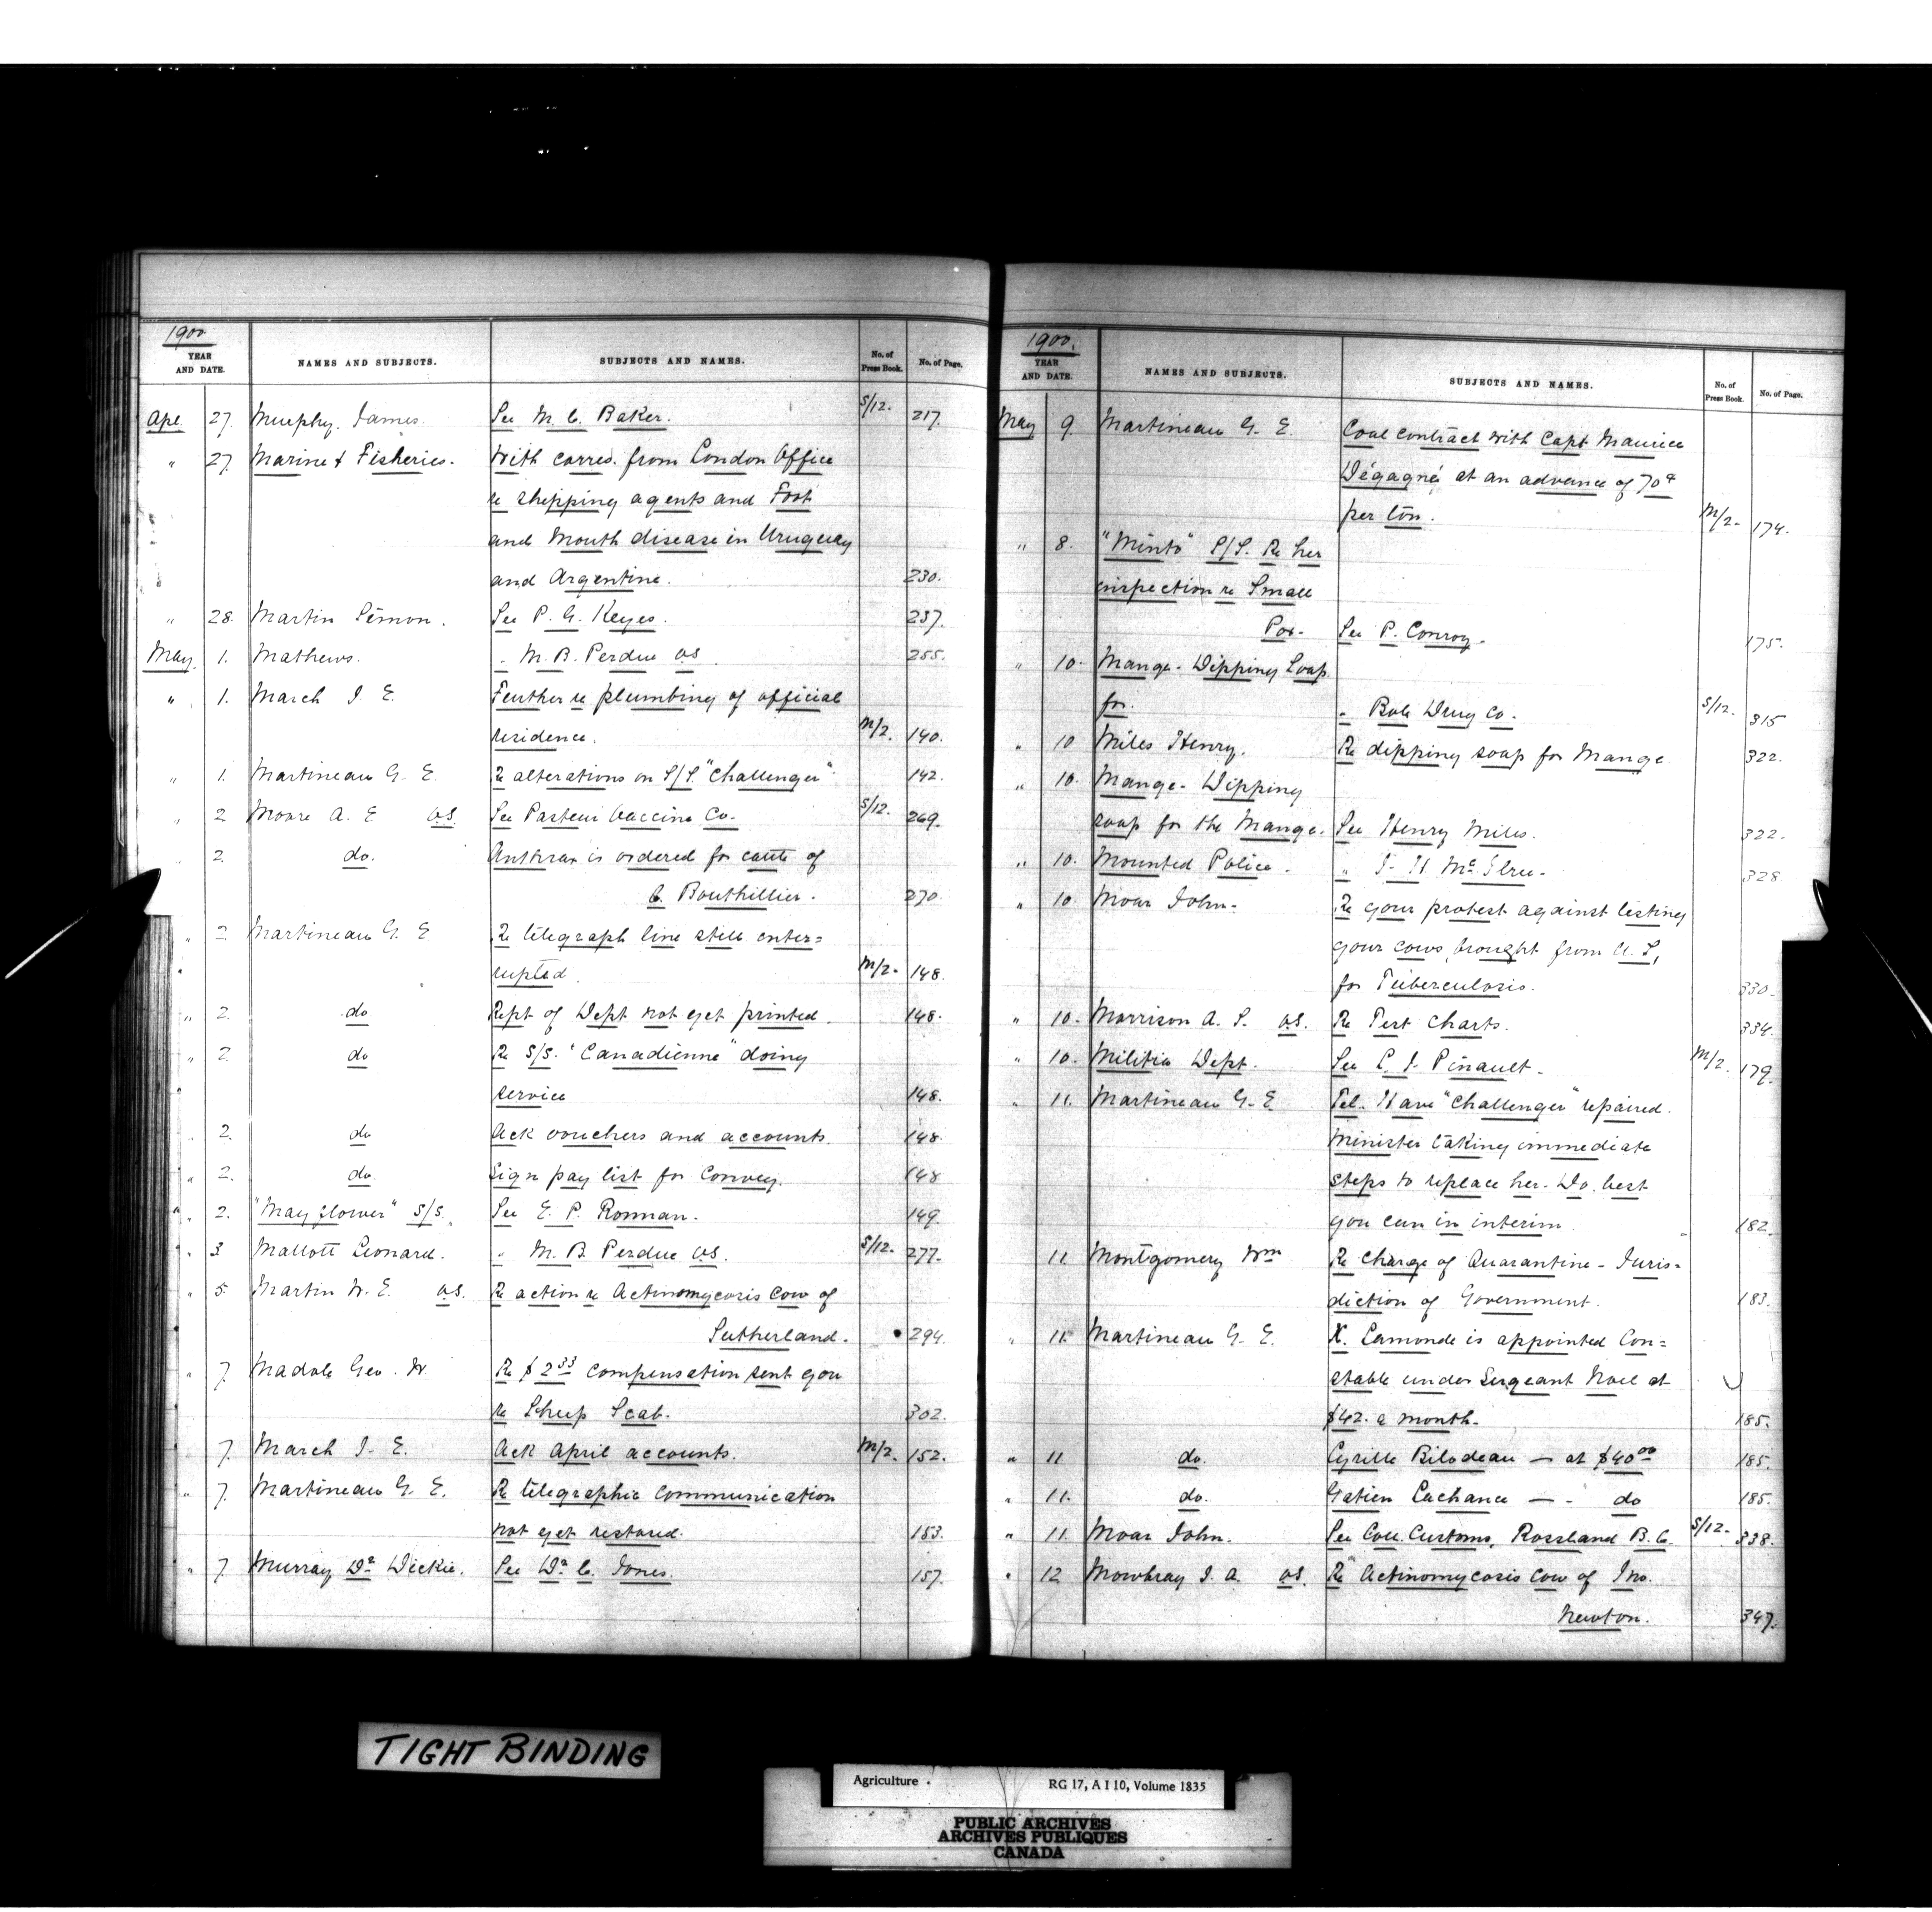 1900.
YEAR AND DATE. NAMES AND SUBJECTS. SUBJECTS AND NAMES. No. of Press Book. No. of Page.
Apl. 27. Murphy, James. See M. C. Baker. S/12. 217.
" 27. Marine & Fisheries. With corres. from London Office
re shipping agents and Foot
and Mouth disease in Uruguay
and Argentine. 230.
" 28. Martin Simon. See P. G. Keyes. 237.
May 1. Mathews. " M. B. Perdue V.S. 255.
" 1. March J. E. Further re plumbing of official
residence. M/2. 140.
" 1. Martineau G. E. Re alterations on S/S. "Challenger". 142.
" 2. Moore A. E. V.S. See Pasteur Vaccine Co. S/12. 269.
" 2. do. Anthrax is ordered for cattle of
C. Bouthillier. 270.
" 2. Martineau G. E. Re telegraph line still inter=
rupted. M/2. 148.
" 2. do Rept of Dept not yet printed. 148.
" 2. do Re S/S. "Canadienne" doing
service 148.
" 2. do Ack vouchers and accounts. 148.
" 2. do. Sign pay list for Convey. 148
" 2. "Mayflower" S/S. See E. P. Ronnan. 149.
" 3. Mallott Leonard. " M. B. Perdue V.S. S/12. 277.
" 5. Martin W. E. V.S. Re action re Actinomycosis cow of
Sutherland. 294.
" 7. Madole Geo. W. Re $2.33 compensation sent you
re Sheep Scab. 302.
7. March J. E. Ack April accounts. M/2. 152.
" 7. Martineau G. E. Re telegraphic communication
not yet restored. 153.
" 7. Murray Dr Dickie. See Dr C. Jones. 157.
1900.
YEAR AND DATE. NAMES AND SUBJECTS. SUBJECTS AND NAMES. No. of Press Book. No. of Page.
May 9. Martineau G. E. Coal contract with Capt Maurice
Dégagné at an advance of 70¢
per ton. M/2. 174.
" 8. "Minto" S/S. Re her
inspection re Small
Pox. See P. Conroy. 175.
" 10. Mange. Dipping Soap
for. " Bole Drug Co. S/12. 315
" 10 Miles Henry. Re dipping soap for Mange 322.
" 10. Mange. Dipping
soap for the Mange. See Henry Miles. 322.
" 10. Mounted Police. " 328
" 10. Moar John. Re your protest against testing
your cows brought from U. S.
for Tuberculosis. 330.
" 10. Morrison A. S. V.S. Re Test Charts. 334.
" 10. Militia Dept. See Pinault. M/2. 179.
" 11. Martineau G. E. Tel. Have "Challenger" repaired.
Minister taking immediate
steps to replace her. Do best
you can in interim. 182.
11. Montgomery Wm Re Charge of Quarantine - Juris=
diction of Government. 183.
" 11. Martineau G. E. X. Lamonde is appointed Con=
stable under Sergeant Noel at
$42. a month. 185.
" 11 do. Cyrille Bilodeau — at $40.00 185.
" 11. do. Gatien Lachance — do 185.
" 11. Moar John. See Coll. Customs, Rossland B.C. S/12. 338.
" 12 Mowbray J. A. V.S. Re Actinomycosis cow of Jno.
Newton. 347.
TIGHT BINDING
Agriculture. RG 17, A I 10, Volume 1835
PUBLIC ARCHIVES
ARCHIVES PUBLIQUES
CANADA